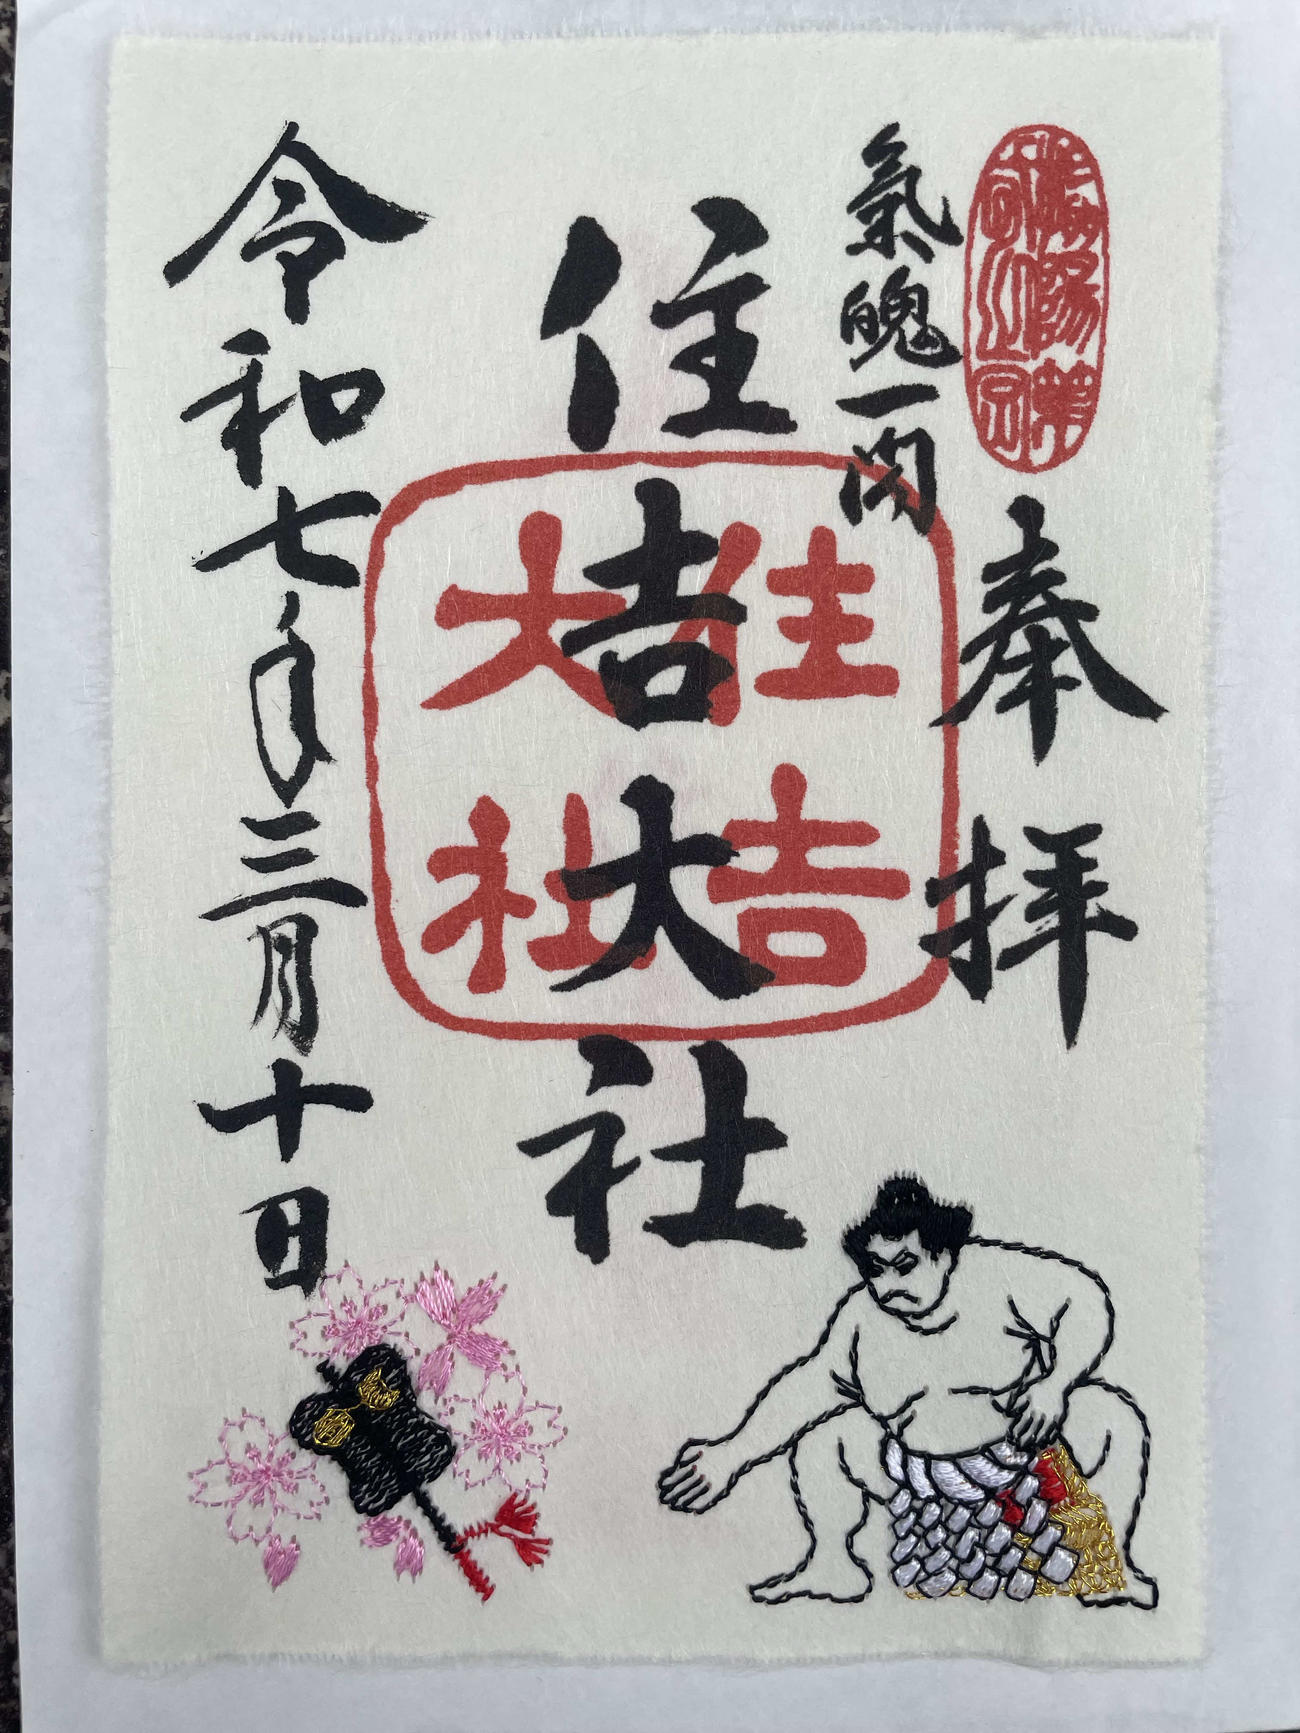 奉拝
氣魄一閃
住吉大社
住吉
大社
令和七年三月十日